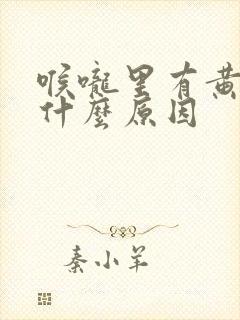 喉嚨里有黄
什麽原因
秦小羊